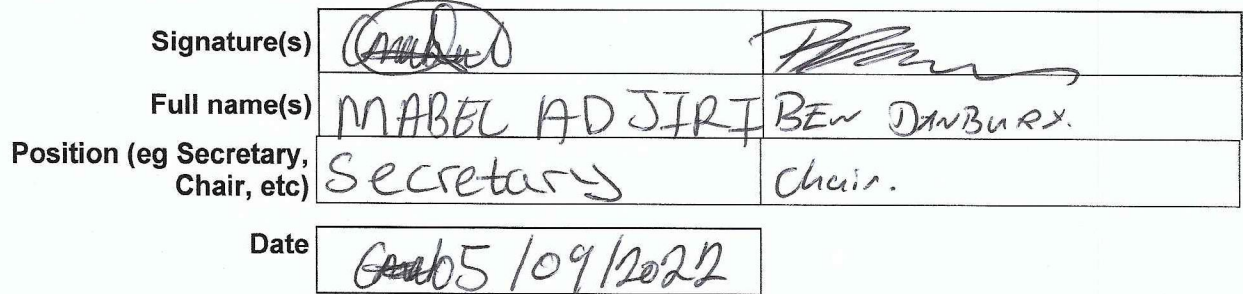 Signature(s)
Full name(s) MABEL ADJIRI BEN DANBURY.
Position (eg Secretary, Secretary Chair.
Chair, etc)
Date 05/09/2022